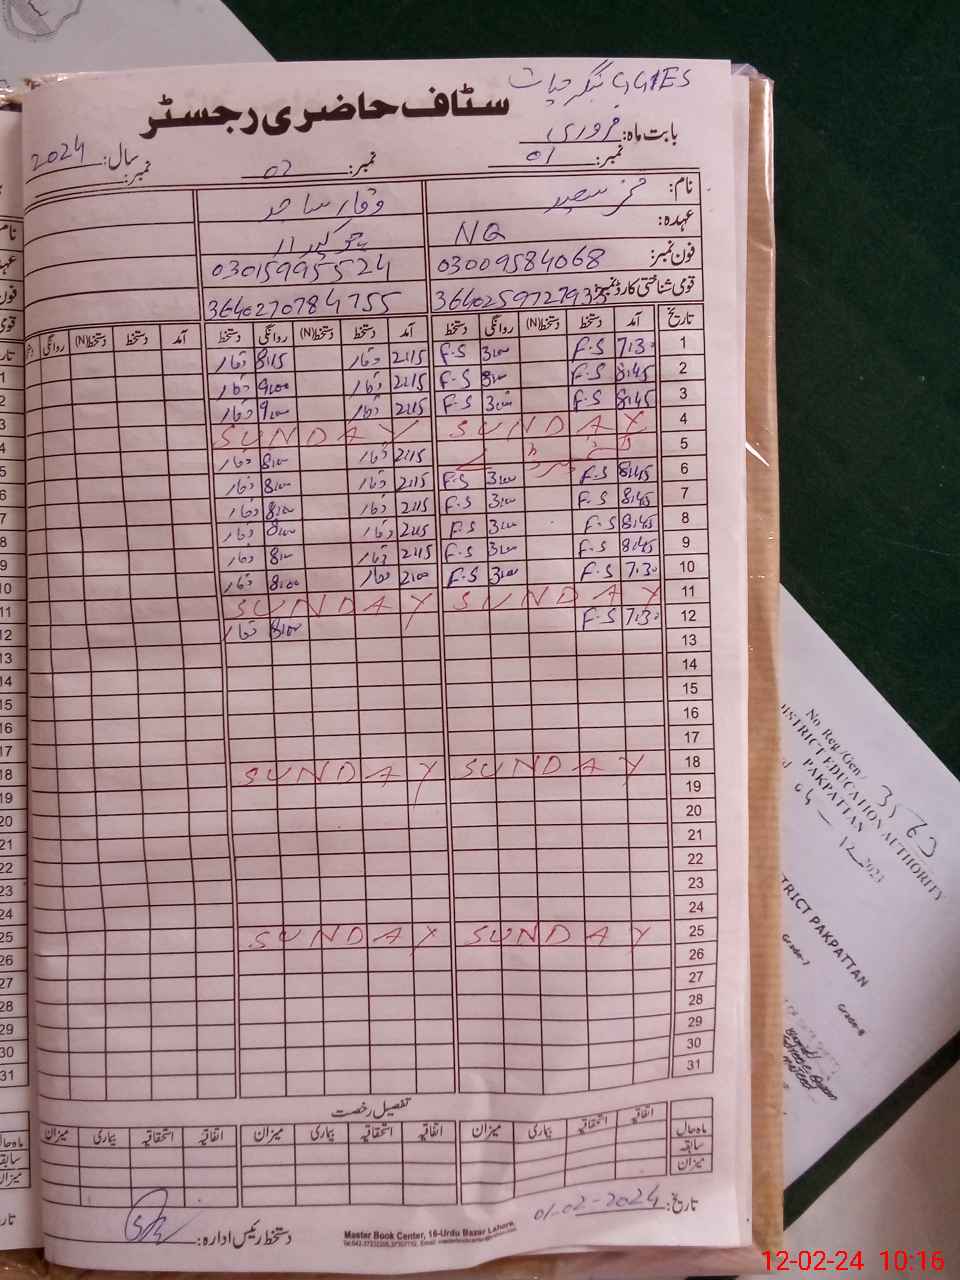 GGIES
سٹاف حاضری رجسٹر
بابت ماہ: فروری
سال: 2024
نمبر: 01 نمبر: 02 نمبر:
نام: وقار ساجد
عہدہ: NQ چوکیدار
فون نمبر: 03009584068 03015995524
قومی شناختی کارڈ نمبر: 3640270784755
تاریخ آمد دستخط دستخط(N) روانگی دستخط آمد دستخط دستخط(N) روانگی دستخط آمد دستخط دستخط(N) روانگی
1 7:30 F.S 3:00 F.S 2:15 وقار 8:15 وقار
2 8:45 F.S 3:00 F.S 2:15 وقار 9:00 وقار
3 8:45 F.S 3:00 F.S 2:15 وقار 9:00 وقار
4 SUNDAY SUNDAY
5 2:15 وقار 8:00 وقار
6 8:45 F.S 3:00 F.S 2:15 وقار 8:00 وقار
7 8:45 F.S 3:00 F.S 2:15 وقار 8:00 وقار
8 8:45 F.S 3:00 F.S 2:15 وقار 8:00 وقار
9 8:45 F.S 3:00 F.S 2:15 وقار 8:00 وقار
10 7:30 F.S 3:00 F.S 2:00 وقار 8:00 وقار
11 SUNDAY SUNDAY
12 7:30 F.S 8:00 وقار
13
14
15
16
17
18 SUNDAY SUNDAY
19
20
21
22
23
24
25 SUNDAY SUNDAY
26
27
28
29
30
31
تفصیل رخصت
اتفاقیہ استحقاقیہ بیماری میزان اتفاقیہ استحقاقیہ بیماری میزان اتفاقیہ استحقاقیہ بیماری میزان
ماہ حال
سابقہ
میزان
تاریخ: 01-02-2024
دستخط رئیس ادارہ:
Master Book Center, 16-Urdu Bazar Lahore.
No Reg/Gen/ 3563
DISTRICT EDUCATION AUTHORITY
PAKPATTAN
04-12-2023
TRICT PAKPATTAN
Grade-7
Grade-8
12-02-24 10:16